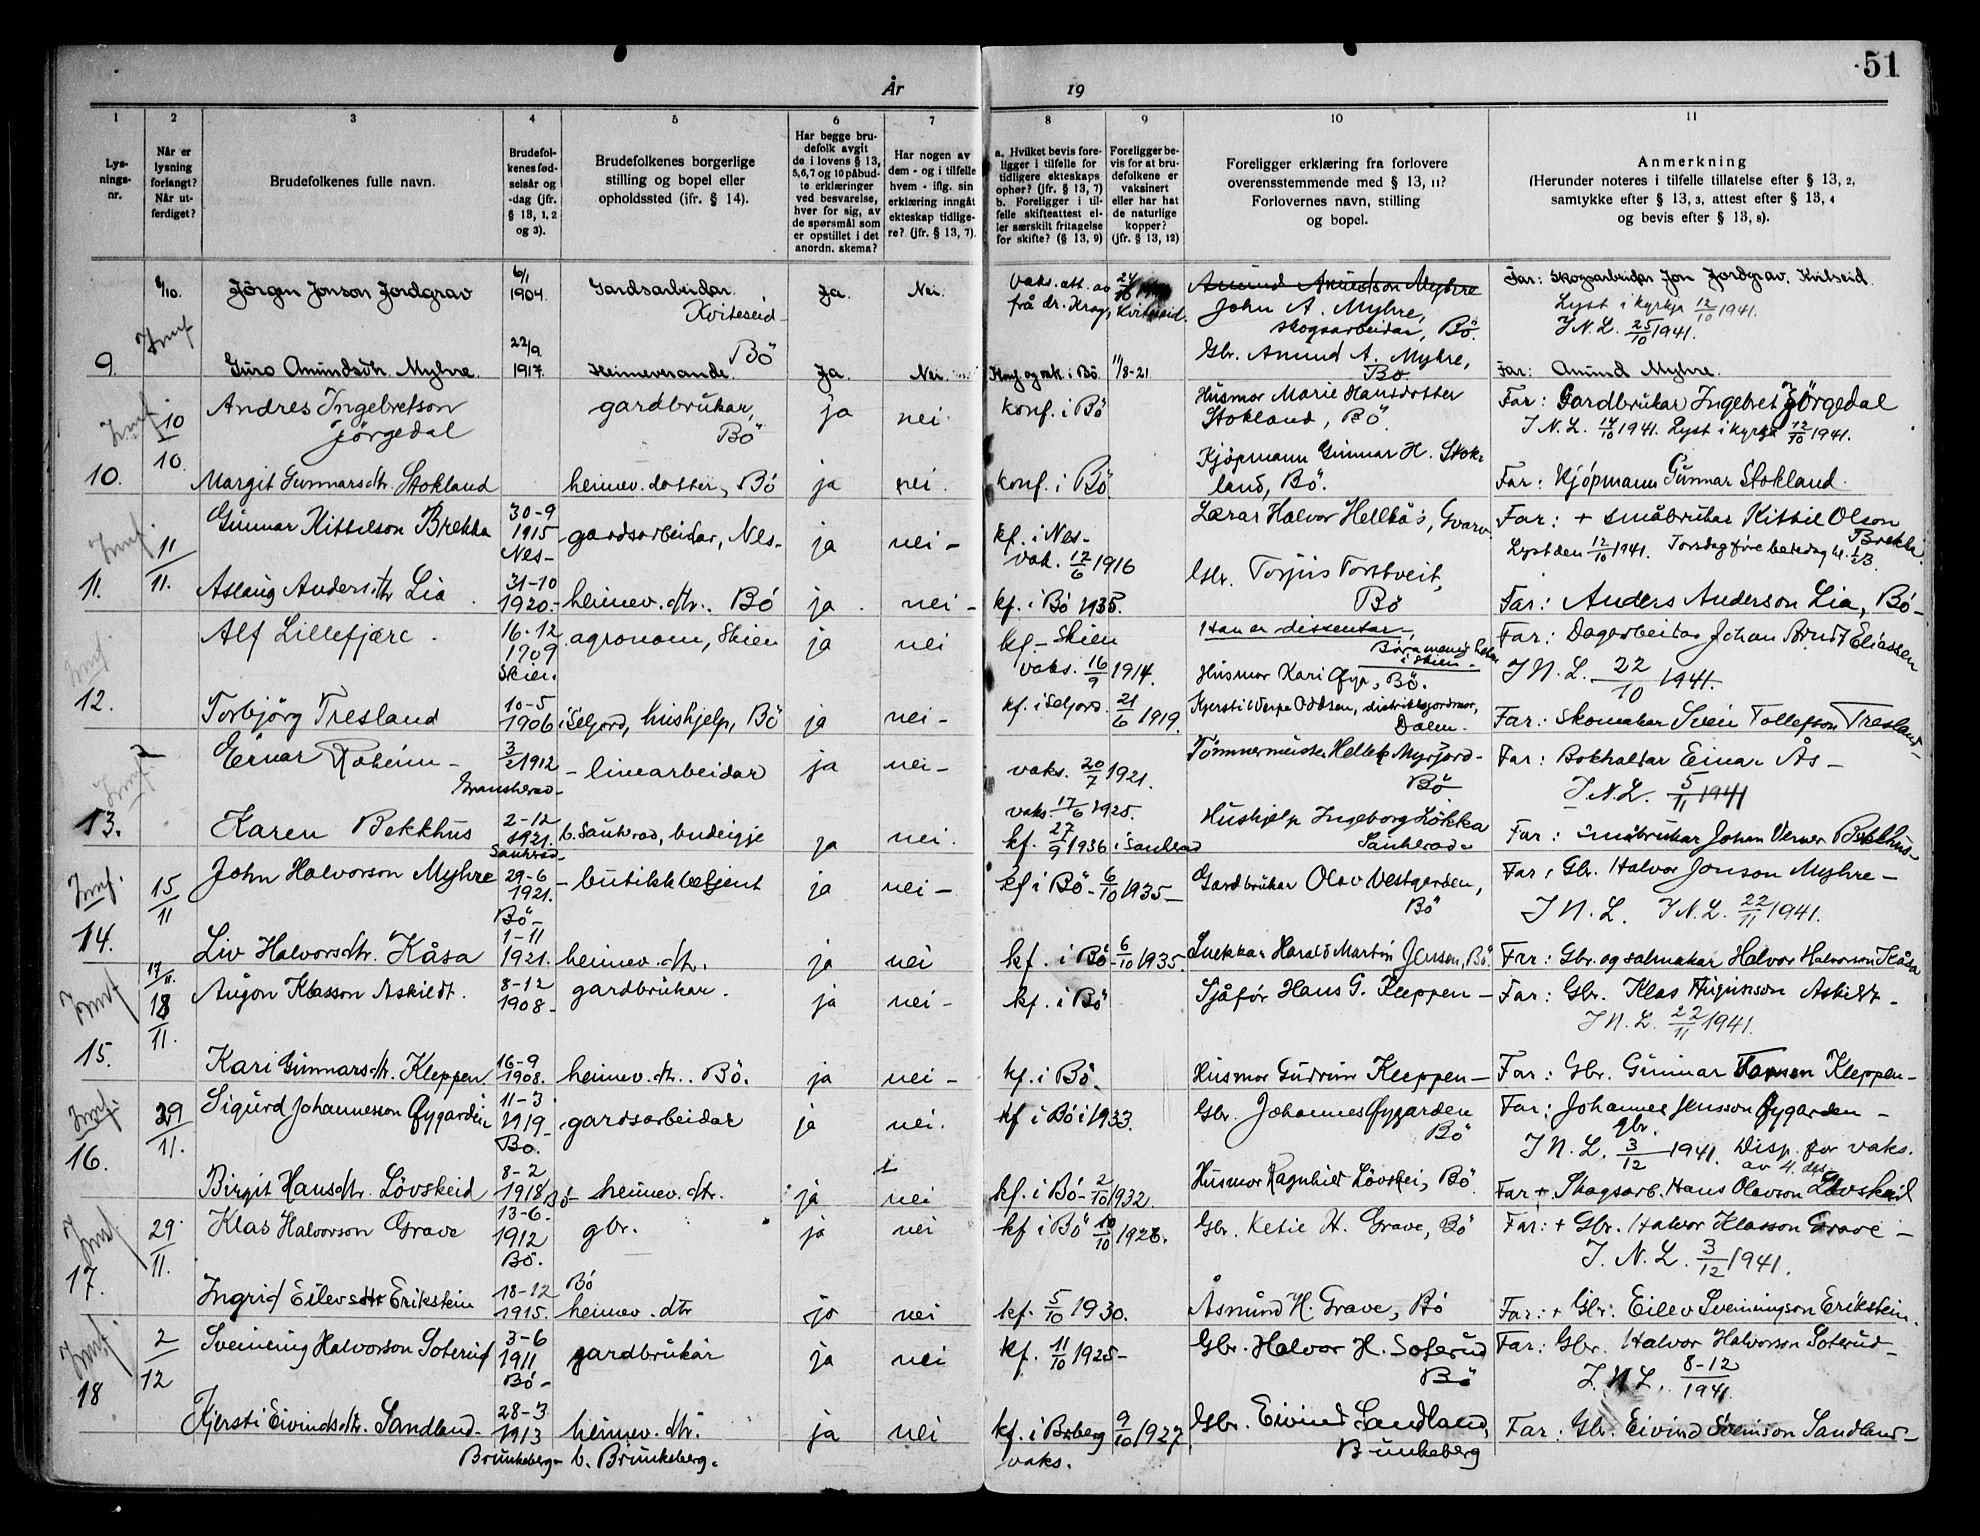 51
År 19
1 2 3 4 5 6 7 8 9 10 11
Lysningsnr.
Når er lysning forlangt? Når utferdiget?
Brudefolkenes fulle navn.
Brudefolkenes fødselsår og -dag (jfr. § 13, 1, 2 og 3).
Brudefolkenes borgerlige stilling og bopel eller opholdssted (jfr. § 14).
Har begge brudefolk avgit de i lovens § 13, 5, 6, 7 og 10 påbudte erklæringer ved besvarelse, hver for sig, av de spørsmål som er opstillet i det anordn. skema?
Har nogen av dem - og i tilfelle hvem - iflg. sin erklæring inngåt ekteskap tidligere? (jfr. § 13, 7).
a. Hvilket bevis foreligger i tilfelle for tidligere ekteskaps ophør? (jfr. § 13, 7) b. Foreligger i tilfelle skifteattest eller særskilt fritagelse for skifte? (§ 13, 9)
Foreligger bevis for at brudefolkene er vaksinert eller har hat de naturlige kopper? (jfr. § 13, 12)
Foreligger erklæring fra forlovere overensstemmende med § 13, 11? Forlovernes navn, stilling og bopel.
Anmerkning (Herunder noteres i tilfelle tillatelse efter § 13, 2, samtykke efter § 13, 3, attest efter § 13, 4 og bevis efter § 13, 8).
8/10. Jörgen Jonson Jordgrav 6/1 1904. Gardsarbeidar. Kviteseid Ja. Nei. Vaks. att. av frå dr. Krag, Kviteseid. Amund Amundson Myhre John A. Myhre, skogsarbeidar, Bö. Far: Skogsarbeidar Jon Jordgrav, Kvitseid
Lyst i kyrkja 12/10 1941.
I N. L. 25/10 1941.
9. Guro Amundsdtr. Myhre. 22/9 1917. Bö Heimeverande. Ja. Nei. Konf. og vak. i Bö 11/8-21 Gbr. Amund A. Myhre, Bö. Far: Amund Myhre.
10/10. Andres Ingebretson Jörgedal gardbrukar, Bö ja nei konf. i Bö Husmor Marie Hansdotter Stokland, Bö. Far: Gardbrukar Ingebret Jörgedal
I N. L. 14/10 1941. Lyst i kyrkja 12/10 1941.
10. Margit Gunnarsdtr. Stokland heimev. dotter, Bö ja nei. konf. i Bö Kjöpmann Gunnar H. Stokland, Bö. Far: Kjöpmann Gunnar Stokland.
11/11. Gunnar Kittelson Brekka 30-9 1915 Nes- gardsarbeidar, Nes- ja nei- kf. i Nes- vak. 12/6 1916 Lærar Halvor Hellkås, Gvarv Far: + småbrukar Kittil Olson Brekka.
Lyst den 12/10 1941. Torsdag före bededag kl. 1/2 3.
11. Aslaug Andersdtr Lia 31-10 1920.- heimev. dtr.. Bö ja. nei- kf. i Bö 1935. Gbr. Torjus Torstveit, Bö Far: Anders Anderson Lia, Bö-
Alf Lillefjære. 16-12 1909 Skien. agronom, Skien ja nei kf.- Skien vaks. 16/9 1914. Han er dissentar i Skien Husmor Kari Öya, Bö. Far: Dagarbeidar Johan Arndt Eliassen
I N. L. 22/10 1941.
12. Torbjörg Tresland 10-5 1906 i Seljord, hushjelp, Bö ja nei- kf. i Seljord 21/6 1919. Kjersti Verpe Oddsen, distriktsjordmor, Dalen. Far: Skomakar Svein Tollefson Tresland
Einar Roheim- 3/2 1912 Gransherad- linearbeidar ja nei- vaks. 20/7 1921. Tömmermeister Hellek Myrjord- Bö Far: Bokhaldar Einar Ås-
I. N. L. 5/11 1941
13. Karen Bekkhus 2-12 1921. Sauherad- b. Sauherad, budeigje ja nei. vaks. 17/6 1925. kf. 27/9 1936 i Sauherad Hushjelp Ingeborg Lökka Sauherad- Far: Småbrukar Johan Verner Bekkhus-
15/11 John Halvorson Myhre 29-6 1921. Bö- butikkbetjent ja nei- kf i Bö- 6/10 1935- Gardbrukar Olav Vestgarden, Bö Far: Gbr. Halvor Jonson Myhre-
I N. L. I N. L. 22/11 1941.
14. Liv Halvorsdtr. Kåsa 1-11 1921. heimev. dtr. ja nei kf. i Bö- 6/10 1935. Snekkar Harald Martin Jensen, Bö. Far: Gbr. og salmakar Halvor Halvorson Kåsa
17/11. 18/11. Augon Klasson Askildt. 8-12 1908- gardbrukar. ja nei- kf. i Bö Sjåför Hans G. Kleppen- Far: Gbr. Klas Askildt-
I N. L. 22/11 1941.
15. Kari Gunnarsdtr. Kleppen 16-9 1908. heimev. dtr.. Bö. ja nei- kf. i Bö. Husmor Gudrun Kleppen- Far: Gbr. Gunnar Kleppen-
29/11. Sigurd Johannesson Öygarden 11-3 1919 Bö. gardsarbeidar ja nei. kf i Bö i 1933. Gbr. Johannes Öygarden Bö Far: Johannes Jensson Öygarden- gbr.
I N. L. 3/12 1941. Disp. for vaks. av 4. des.
16. Birgit Hansdtr. Lövskeid 8-2 1918 Bö- heimev. dtr. ja nei kf. i Bö- 2/10 1932. Husmor Ragnhild Lövskei, Bö Far + Skogsarb. Hans Olavson Lövskeid
29/11. Klas Halvorson Grave 13-6- 1912 Bö. gbr. ja nei kf i Bö 10/10 1926. Gbr. Ketil H. Grave, Bö Far: + Gbr. Halvor Klasson Grave-
I. N. L. 3/12 1941.
17. Ingrid Eilevsdtr Erikstein 18-12 1915. Bö heimev. dtr ja nei kf. 5/10 1930. Åsmund H. Grave, Bö Far: + Gbr. Eilev Sveiningson Erikstein.
2/12 Sveinung Halvorson Soterud 3-6 1911 Bö- gardbrukar ja nei kf. 11/10 1925- Gbr. Halvor H. Soterud Bö Far: Gbr. Halvor Halvorson Soterud-
I. N. L. 8-12 1941
18 Kjersti Eivindsdtr. Sandland- 28-3 1913 Brunkeberg- heimev. dtr. b. Brunkeberg. ja nei kf. i Brberg 9/10 1927 vaks. Gbr. Eivind Sandland, Brunkeberg Far: Gbr. Eivind Sveinson Sandland-